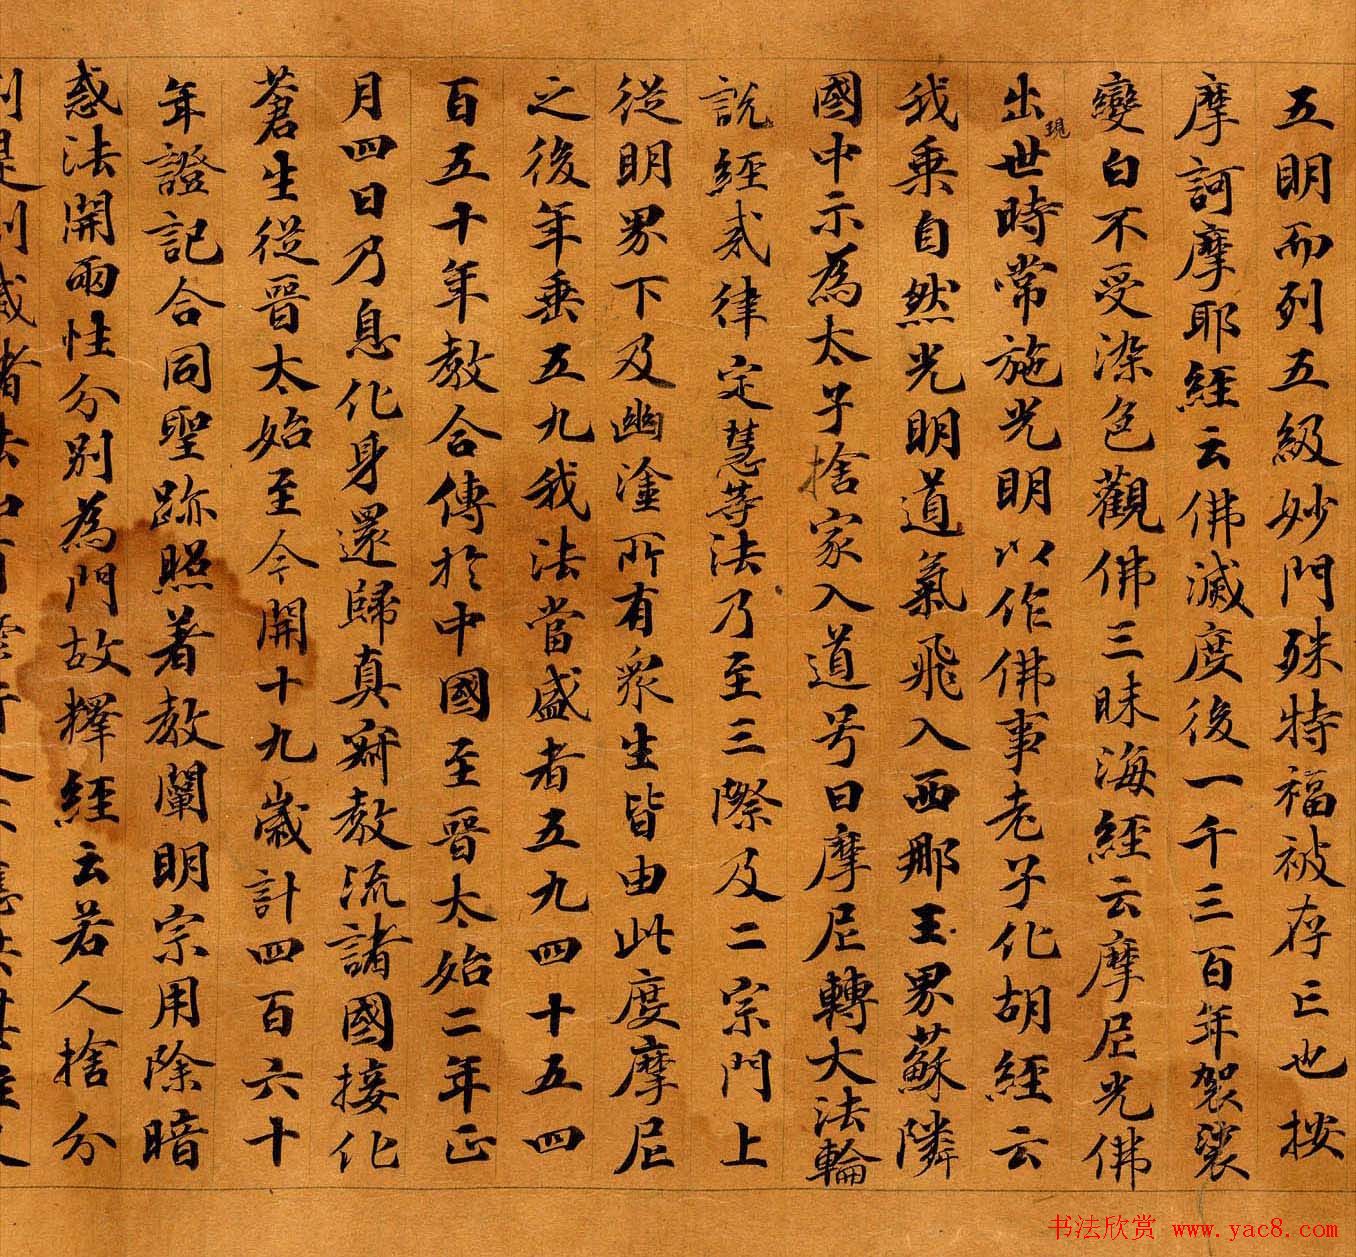 五明而列五級妙門殊特福被存亡也按
摩訶摩耶經云佛滅度後一千三百年袈裟
變白不受染色觀佛三昧海經云摩尼光佛
出世時常施光明以作佛事老子化胡經云
現
我乗自然光明道氣飛入西那玉界蘇隣
國中示為太子捨家入道号曰摩尼轉大法輪
說經戒律定慧等法乃至三際及二宗門上
從明界下及幽塗所有衆生皆由此度摩尼
之後年垂五九我法當盛者五九四十五四
百五十年教合傳於中國至晉太始二年正
月四日乃息化身還歸真寂教流諸國接化
蒼生從晉太始至今開十九歲計四百六十
年證記合同聖跡照著教闡明宗用除暗
惑法開兩性分別為門故釋經云若人捨分
别是
書法欣赏 www.yac8.com